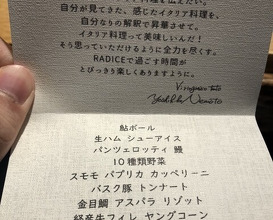 自分が見てきた、感じたイタリア料理を、
自分なりの解釈で昇華させて、
イタリア料理って美味しいんだ！
そう思っていただけるように全力を尽くす。
RADICEで過ごす時間が
とびっきり楽しくありますように。
鮎ボール
生ハム シューアイス
パンツェロッティ 鰻
10種類野菜
スモモ パプリカ カッペリーニ
バスク豚 トンナート
金目鯛 アスパラ リゾット
経産牛フィレ ヤングコーン